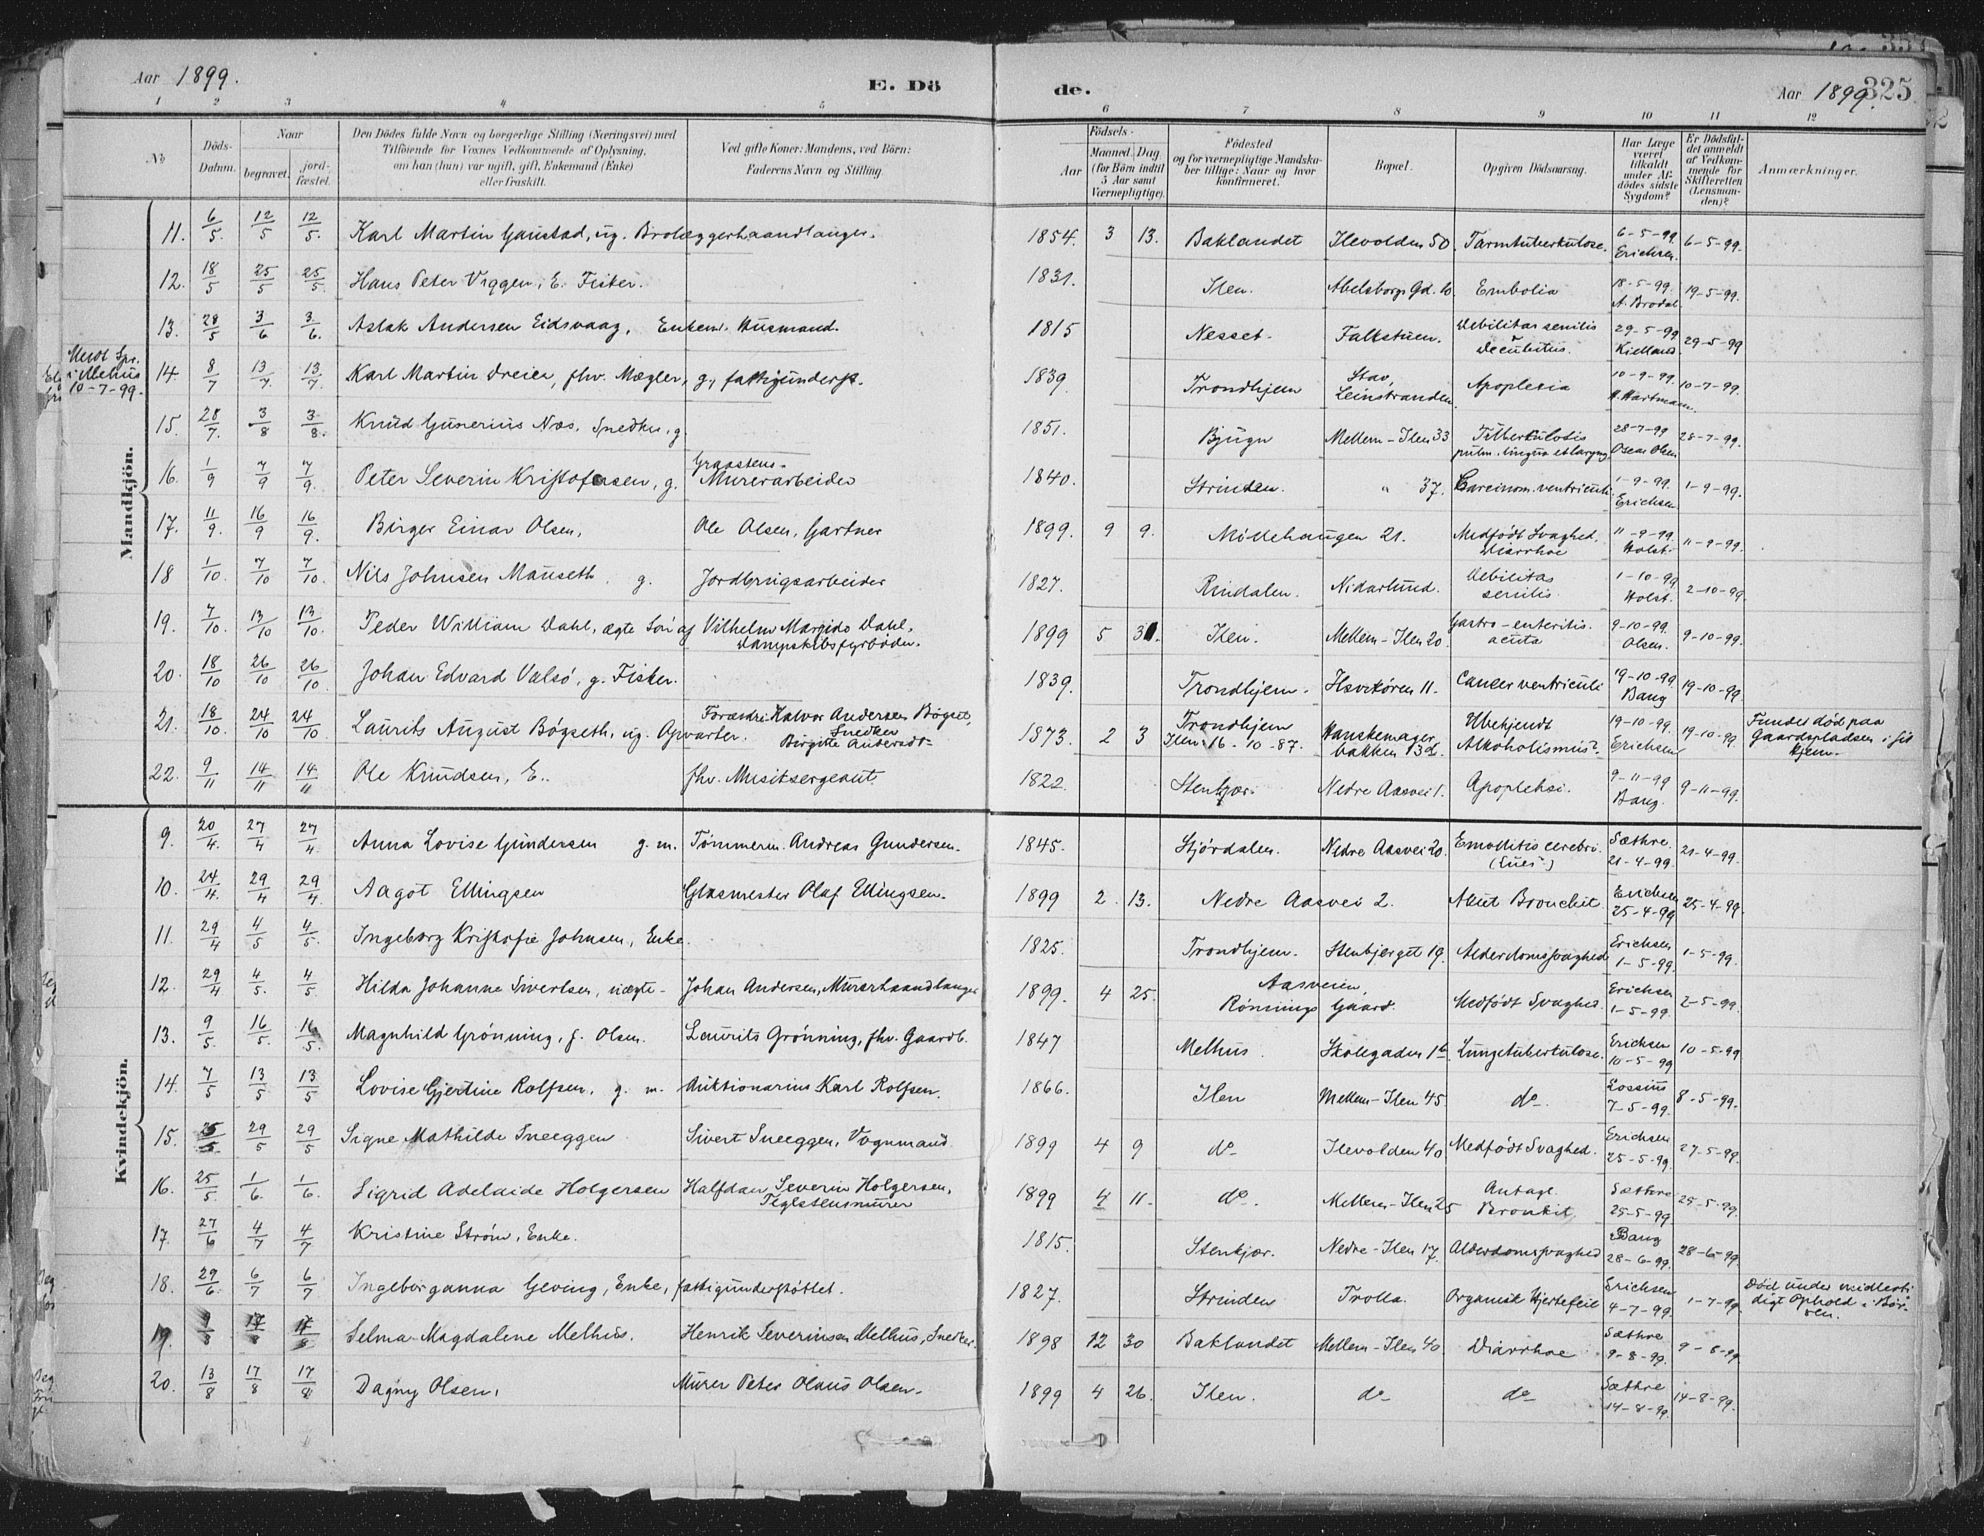 Aar 1899. E. Dö de. Aar 1899. 325
1 2 3 4 5 6 7 8 9 10 11 12
No Döds-Datum. Naar begravet. jordfæstet. Den Dödes fulde Navn og borgerlige Stilling (Næringsvei) med Tilföiende for Voxnes Vedkommende af Oplysning, om han (hun) var ugift, gift, Enkemand (Enke) eller fraskilt. Ved gifte Koner: Mandens, ved Börn: Faderens Navn og Stilling. Födsels- Aar Maaned. Dag (for Börn indtil 5 Aar samt Værnepligtige). Födested og for værnepligtige Mandskaber tillige: Naar og hvor konfirmeret. Bopæl. Opgiven Dödsaarsag. Har Læge været tilkaldt under Afdödes sidste Sygdom? Er Dödsfaldet anmeldt af Vedkommende for Skifteretten (Lensmanden)? Anmærkninger.
Mandkjön.
11. 6/5. 12/5 12/5. Karl Martin Gaustad, ug. Brolæggerhaandlanger. 1854. 3 13. Baklandet Ilevolden 50 Tarmtuberkulose. 6-5-99. Erichsen. 6-5-99.
12. 18/5 25/5 25/5. Hans Peter Viggen, E. Fisker. 1831. Ilen. Abelsborg Gd. 10. Embolia 18-5-99. A. Brodal 19-5-99.
13. 28/5 3/6 3/6. Aslak Andersen Eidsvaag, Enkem. Husmand. 1815 Nesset. Falkstuen. Debilitas senilis Decubitus. 29-5-99 Kielland 29-5-99
Medt Spr. i Melhus 10-7-99.
14. 8/7 13/7 13/7. Karl Martin Dreier, fhv. Mægler, g., fattigunderst. 1839. Trondhjem Stav, Leinstranden. Apoplexia 10-9-99. H. Hartmann. 10-7-99.
15. 28/7. 3/8 3/8. Knud Gunerius Næs. Snedker, g. 1851. Bjugn Mellem-Ilen 33 Tuberkulosis pulm. lingua et laryng. 28-7-99 Oscar Olsen 28-7-99.
16. 1/9 7/9 7/9. Peter Severin Kristofersen, g. Graastens-Murerarbeider 1840. Strinden. " 37. Carcinom. ventriculi 1-9-99. Erichsen 1-9-99.
17. 11/9. 16/9 16/9. Birger Einar Olsen, Ole Olsen, Gartner 1899. 9 9. Möllehaugen 21. Medfödt Svaghed, Diarrhoe 11-9-99. Holst. 11-9-99.
18 1/10. 7/10 7/10. Nils Johnsen Mauseth. g. Jordbrugsarbeider 1827. Rindalen. Nidarlund. Debilitas senilis. 1-10-99 Holst. 2-10-99.
19. 7/10. 13/10 13/10. Peder William Dahl, ægte Sön af Vilhelm Marsido Dahl, Dampskibsfyrböder. 1899 5 31. Ilen. Mellem-Ilen 20. Gastro-enteritis. acuta 9-10-99. Olsen. 9-10-99.
20. 18/10 26/10 26/10. Johan Edvard Valsö, g. Fisker. 1839. Trondhjem. Havekören 11. Cancer ventriculi 19-10-99. Bang 19-10-99.
21. 18/10. 24/10 24/10. Laurits August Bögseth, ug. Opvarter. Forældre: Halvor Andersen Bögset, Snedker Birgitte Andersdt. 1873. 2 3 Trondhjem Ilen 16-10-87. Hanskemagerbakken 13d. Ubekjendt Alkoholismus? 19-10-99. Erichsen 19-10-99. Fundet död paa Gaardspladsen i sit Hjem.
22. 9/11 14/11 14/11 Ole Knudsen, E. fhv. Musiksergeant. 1822. Stenkjær. Nedre Aasvei 1. Apopleksi. 9-11-99 Bang. 9-11-99.
Kvindekjön.
9. 20/4. 27/4 27/4. Anna Lovise Gundersen g. m. Tömmerm. Andreas Gundersen. 1845. Stjördalen. Nedre Aasvei 20. Emollitio cerebri. (Lues) Sæthre. 21-4-99. 21-4-99.
10. 24/4. 29/4 29/4. Aagot Ellingsen Glasmester Olaf Ellingsen. 1899 2. 13. Nedre Aasvei 2. Akut Bronchit. Erichsen 25-4-99 25-4-99.
11. 29/4 4/5 4/5. Ingeborg Kristofie Johnsen, Enke. 1825. Trondhjem. Stenbjerget 19. Alderdomssvaghed Erichsen 1-5-99. 1-5-99.
12. 29/4 4/5. 4/5. Hilda Johanne Sivertsen, uægte- Johan Andersen, Murerhaandlanger 1899. 4 25. Aasveien, Rönnings Gaard. Medfödt Svaghed. Erichsen 1-5-99. 2-5-99.
13. 9/5. 16/5. 16/5. Magnhild Grönning, f. Olsen. Laurits Grönning, fhv. Gaardb. 1847 Melhus. Skolegaden 1b Lungetuberkulose. Erichsen 10-5-99 10-5-99
14. 7/5 13/5 13/5 Lovise Gjertine Rolfsen, g. m. Auktionarius Karl Rolfsen. 1866. Ilen Mellem-Ilen 45. do. Lossius 7-5-99. 8-5-99.
15. 25/5 29/5 29/5 Signe Mathilde Sneeggen Sivert Sneeggen, Vognmand 1899 4 9 do Ilevolden 40 Medfödt Svaghed. Erichsen 25-5-99. 27-5-99.
16. 25/5. 1/6. 1/6. Sigrid Adelaide Holgersen Halfdan Severin Holgersen, Teglstensmurer 1899 4 11. do. Mellem-Ilen 25 Antagl. Bronkit, Sæthre 25-5-99 25-5-99.
17. 27/6 4/7 4/7 Kristine Ström, Enke. 1815. Stenkjær. Nedre-Ilen 17. Alderdomssvaghed Bang 28-6-99. 28-6-99.
18. 29/6. 6/7 6/7 Ingeborganna Geving, Enke, fattigunderstöttet. 1827. Strinden Trolla. Organisk Hjertefeil Erichsen 4-7-99. 1-7-99. Död under midlertidigt Ophold i Börsen.
19. 9/8 17/8 17/8 Selma Magdalene Melhus. Henrik Severinsen Melhus, Snedker. 1898 12 30 Baklandet Mellem-Ilen 40. Diarrhoe Sæthre 9-8-99. 9-8-99
20. 13/8 17/8 17/8 Dagny Olsen, Murer Peter Olaus Olsen. 1899 4 26. Ilen. do do Sæthre 14-8-99. 14-8-99.